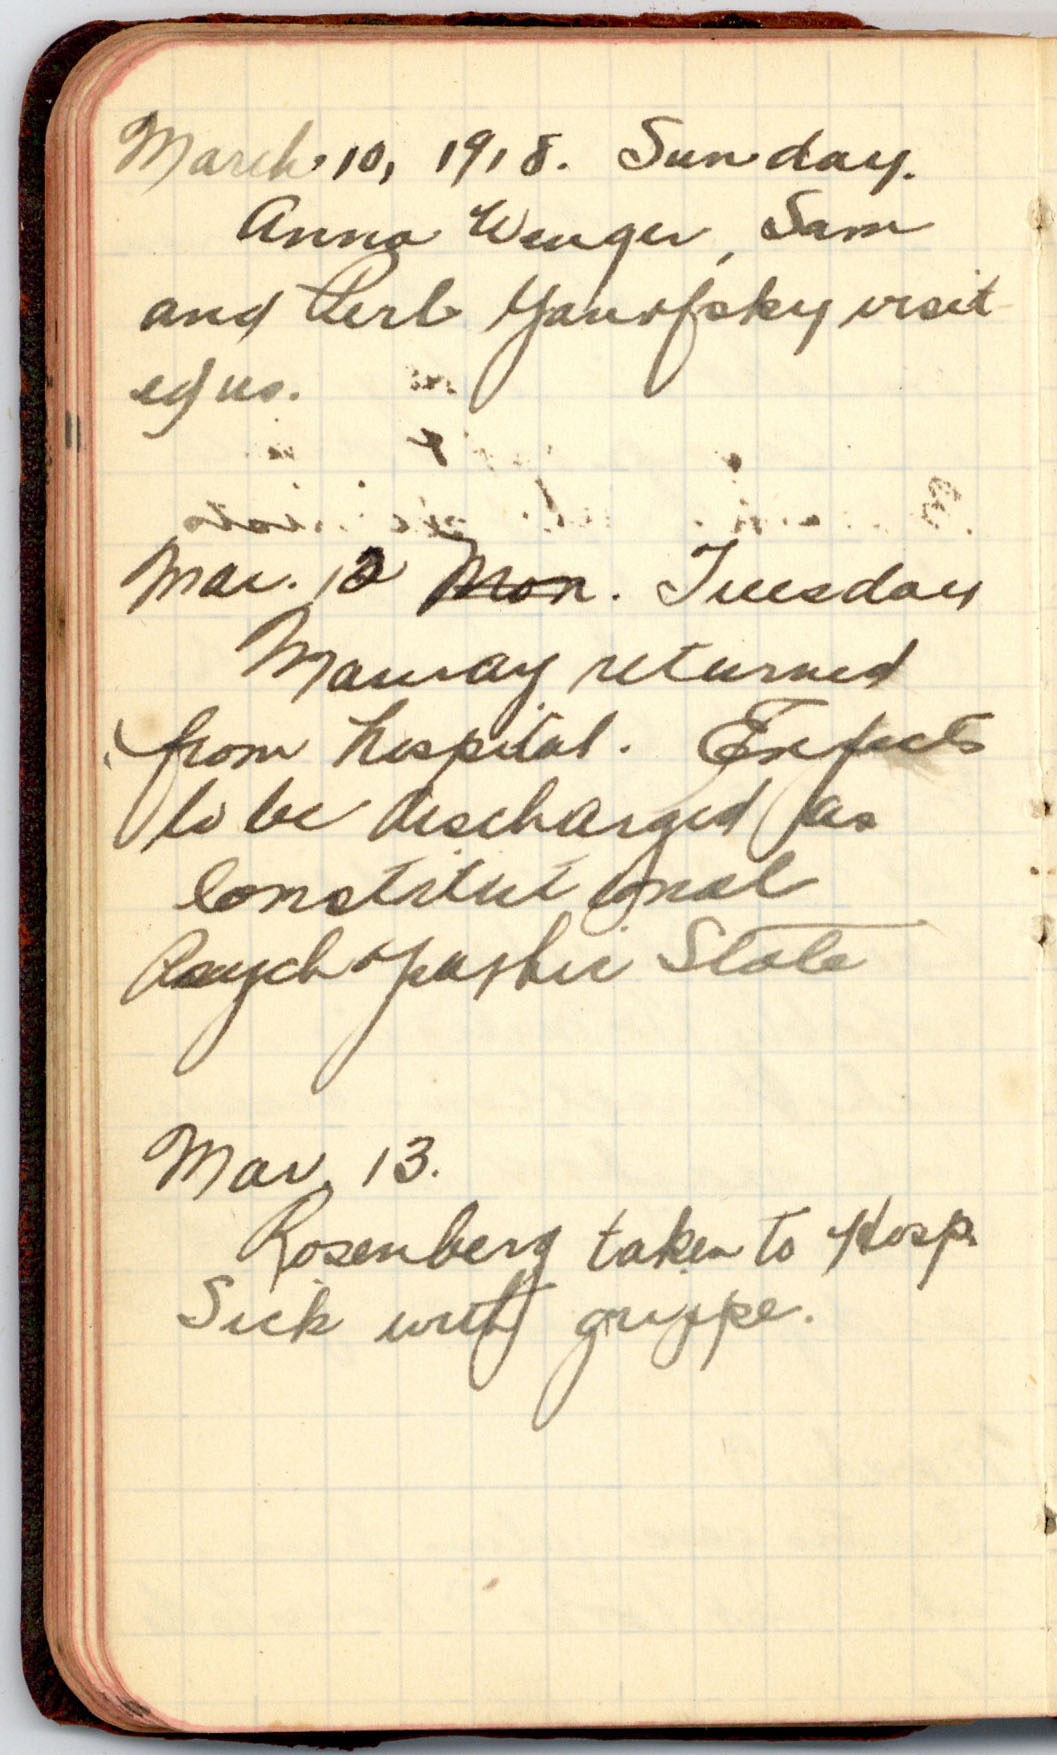 March 10, 1918. Sunday.
Anna Wenger, Sam
and Perl Yanofsky visit
ed us.
Mar. 12 Mon. Tuesday
Mauray returned
from hospital. Expects
to be discharged as
Constitutional
Psychopathic State
Mar. 13.
Rosenberg taken to Hosp.
Sick with grippe.